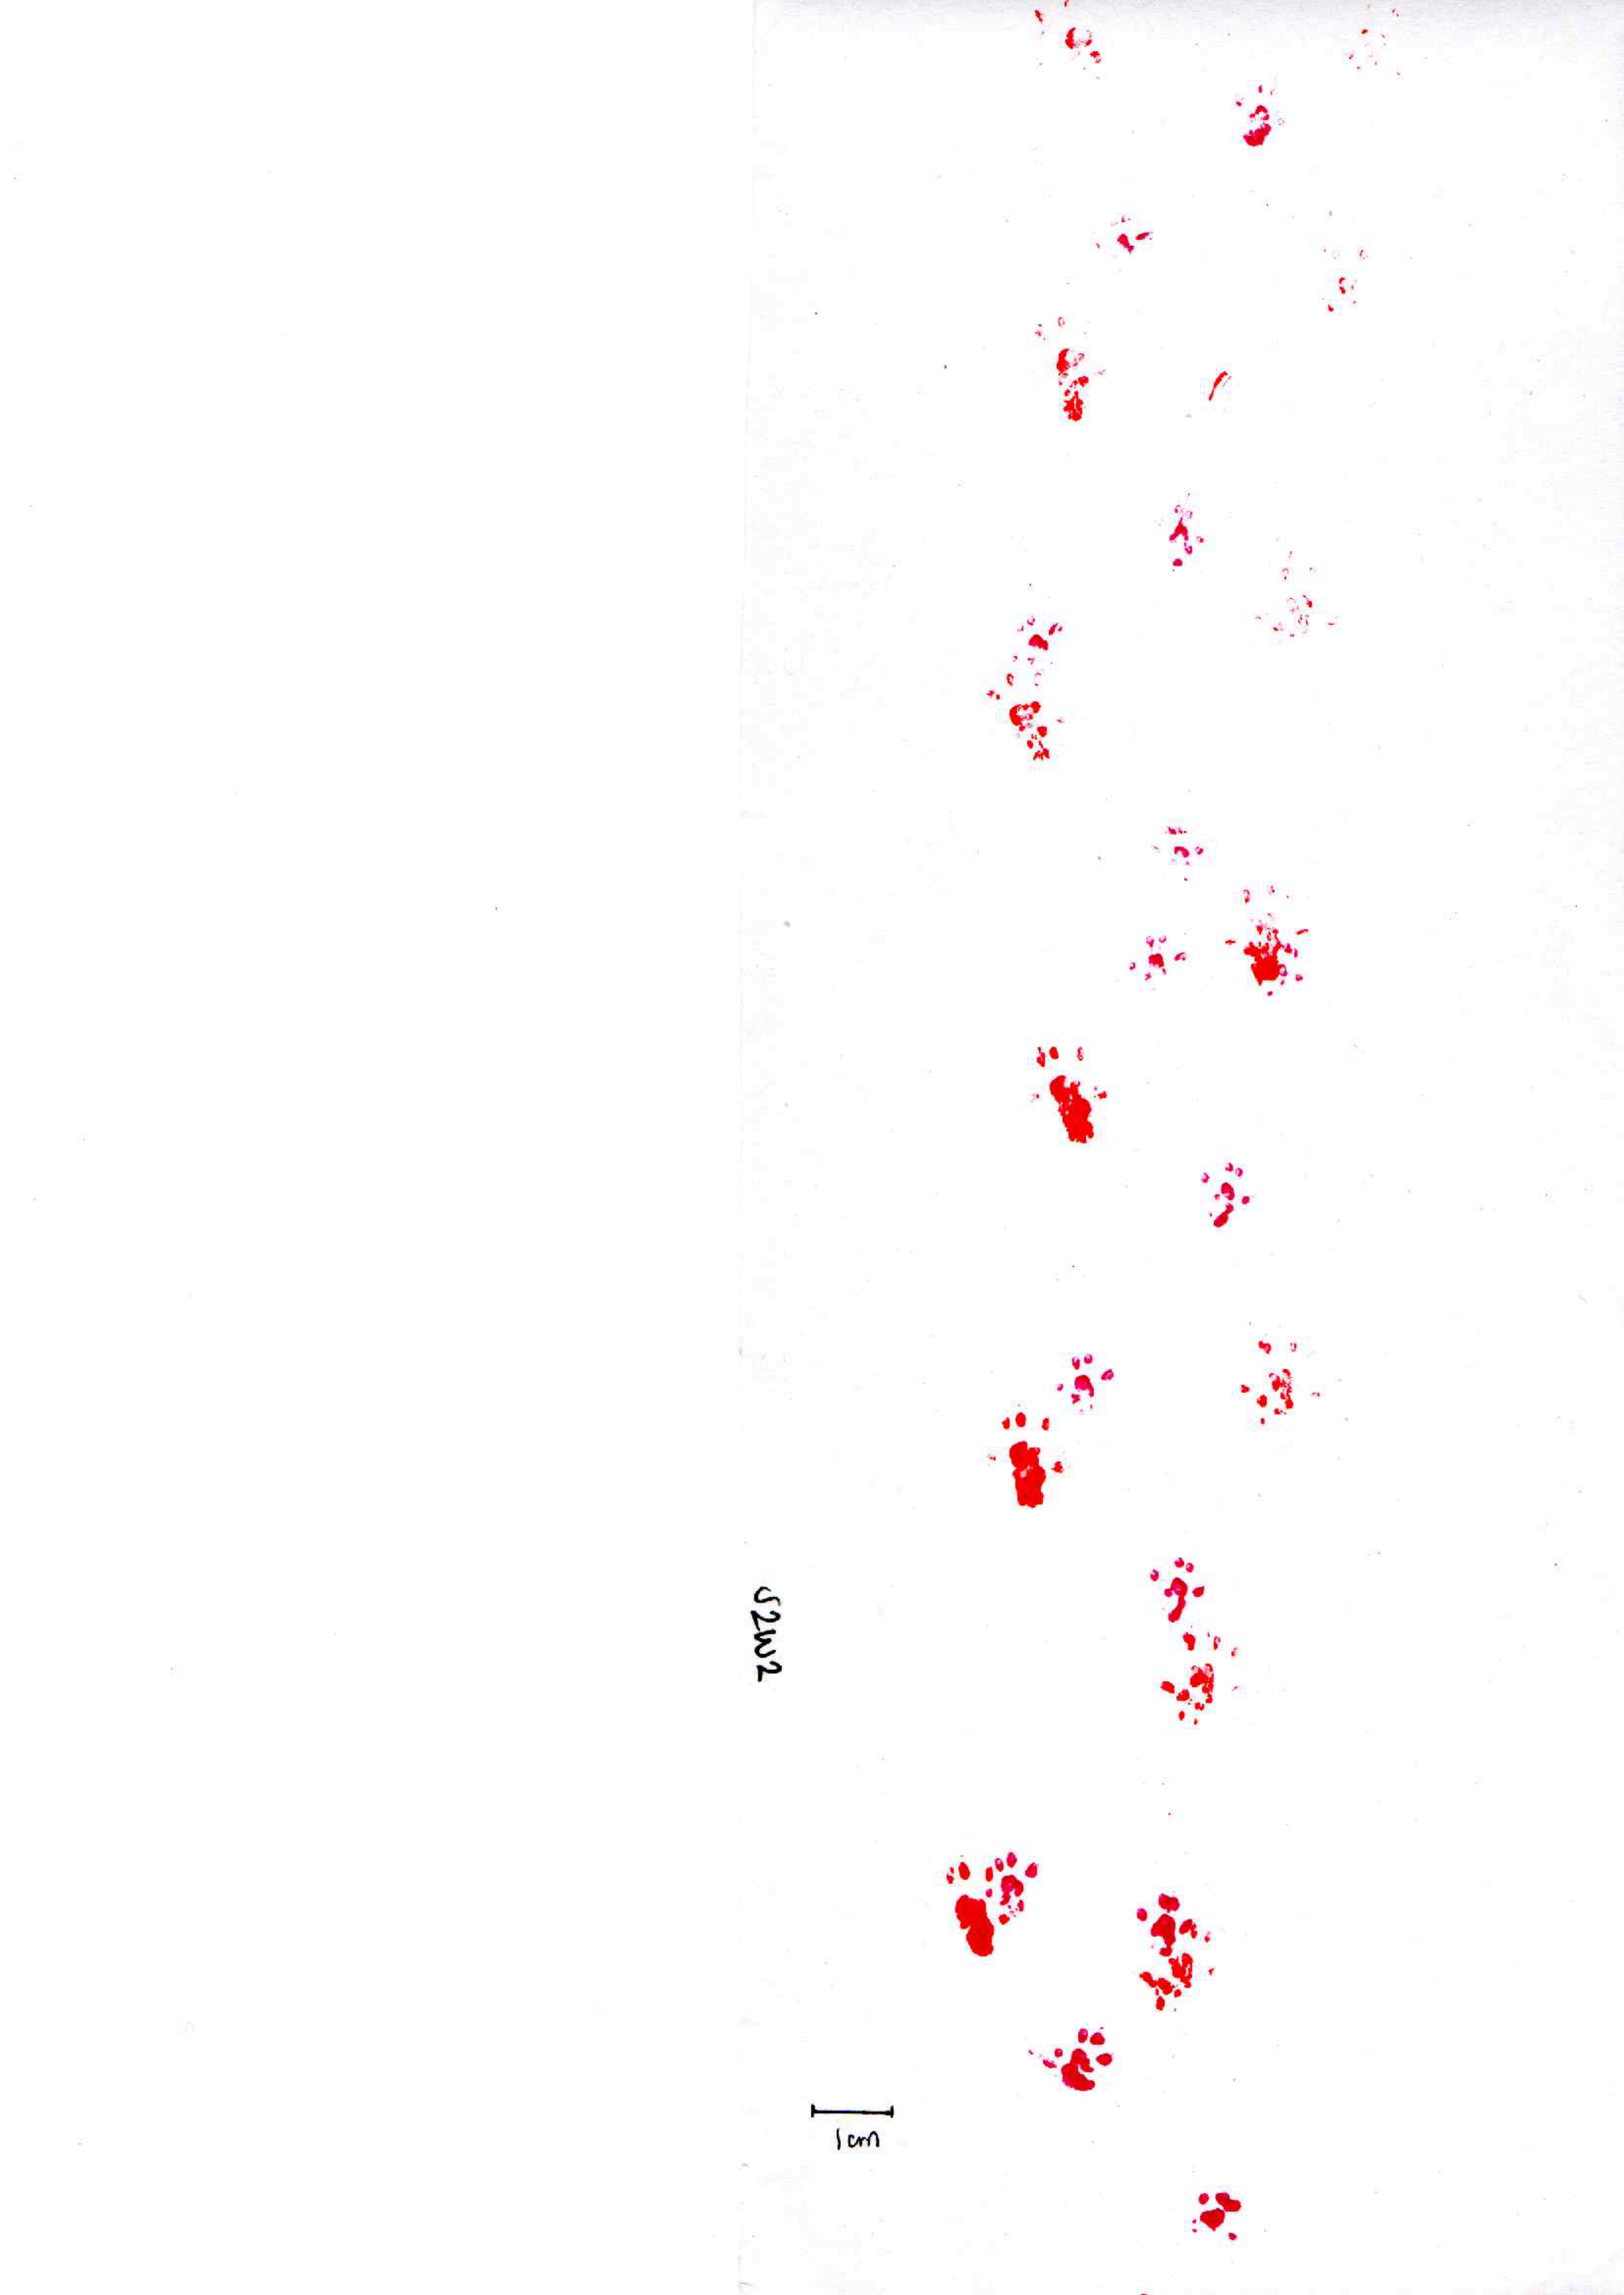 S2W2
1cm